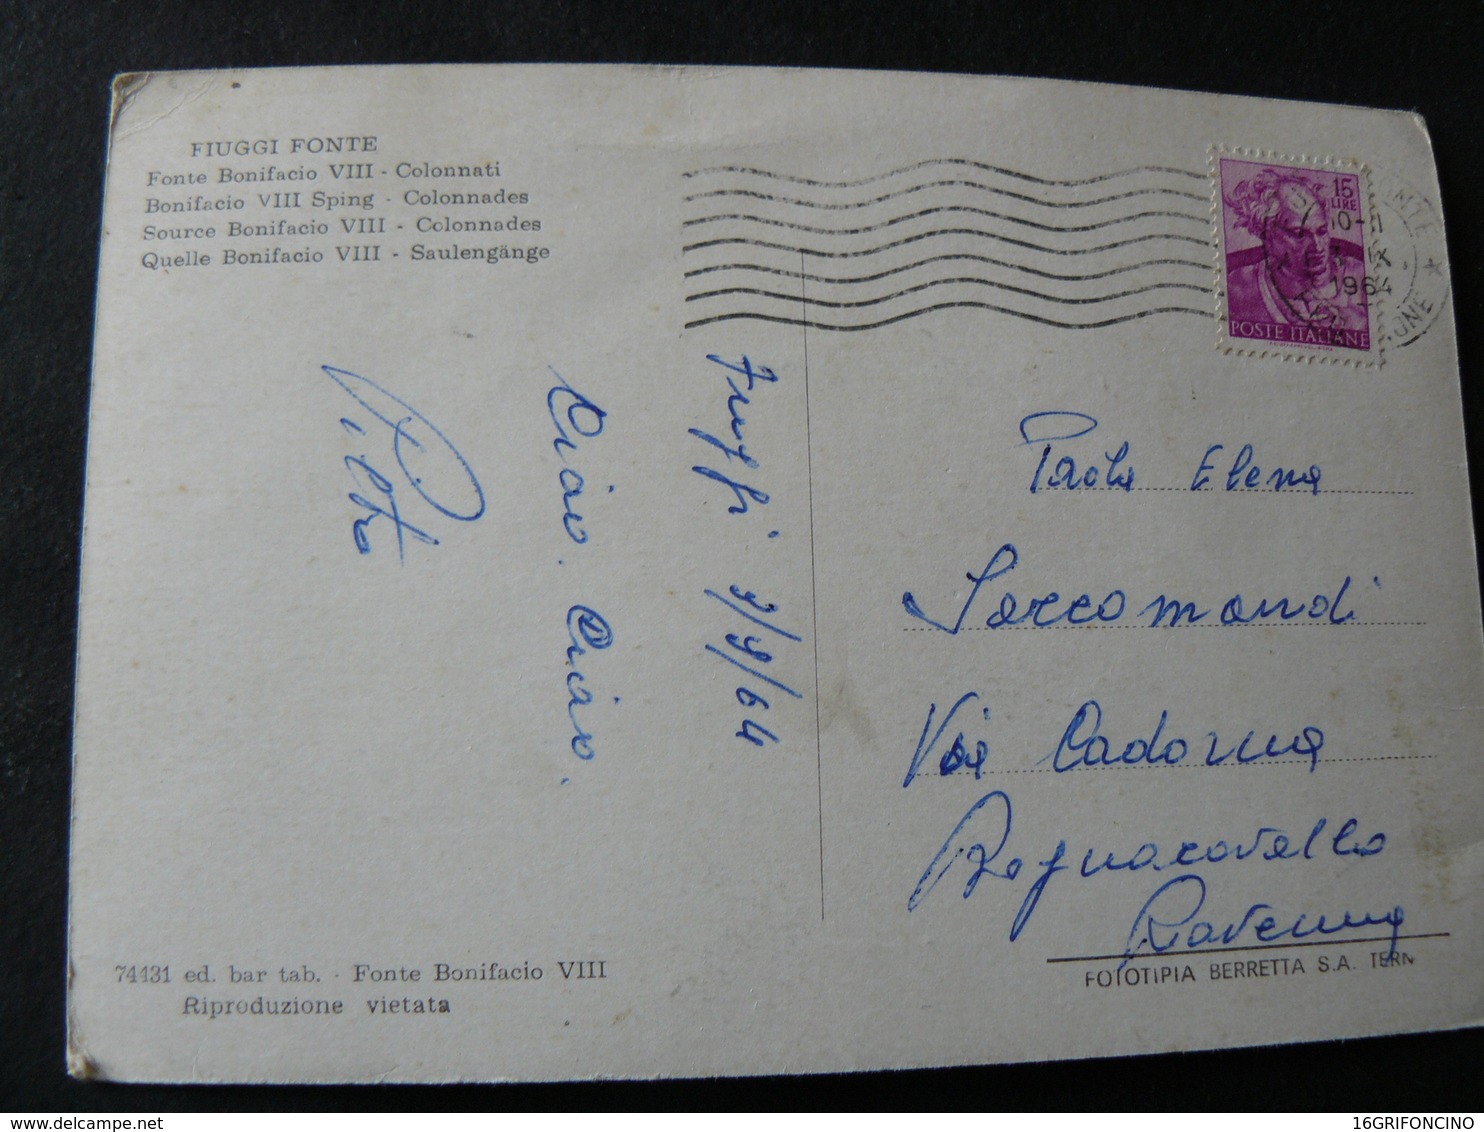 FIUGGI FONTE
Fonte Bonifacio VIII - Colonnati
Bonifacio VIII Sping - Colonnades
Source Bonifacio VIII - Colonnades
Quelle Bonifacio VIII - Saulengänge
15
LIRE
1964
POSTE ITALIANE
Fiuggi 2/9/64
Ciao. Ciao.
Paola Elena
Saccomandi
Via Cadorna
Bagnacavallo
Ravenna
74431 ed. bar tab. - Fonte Bonifacio VIII
Riproduzione vietata
FOTOTIPIA BERRETTA S.A. TERNI
16GRIFONCINO